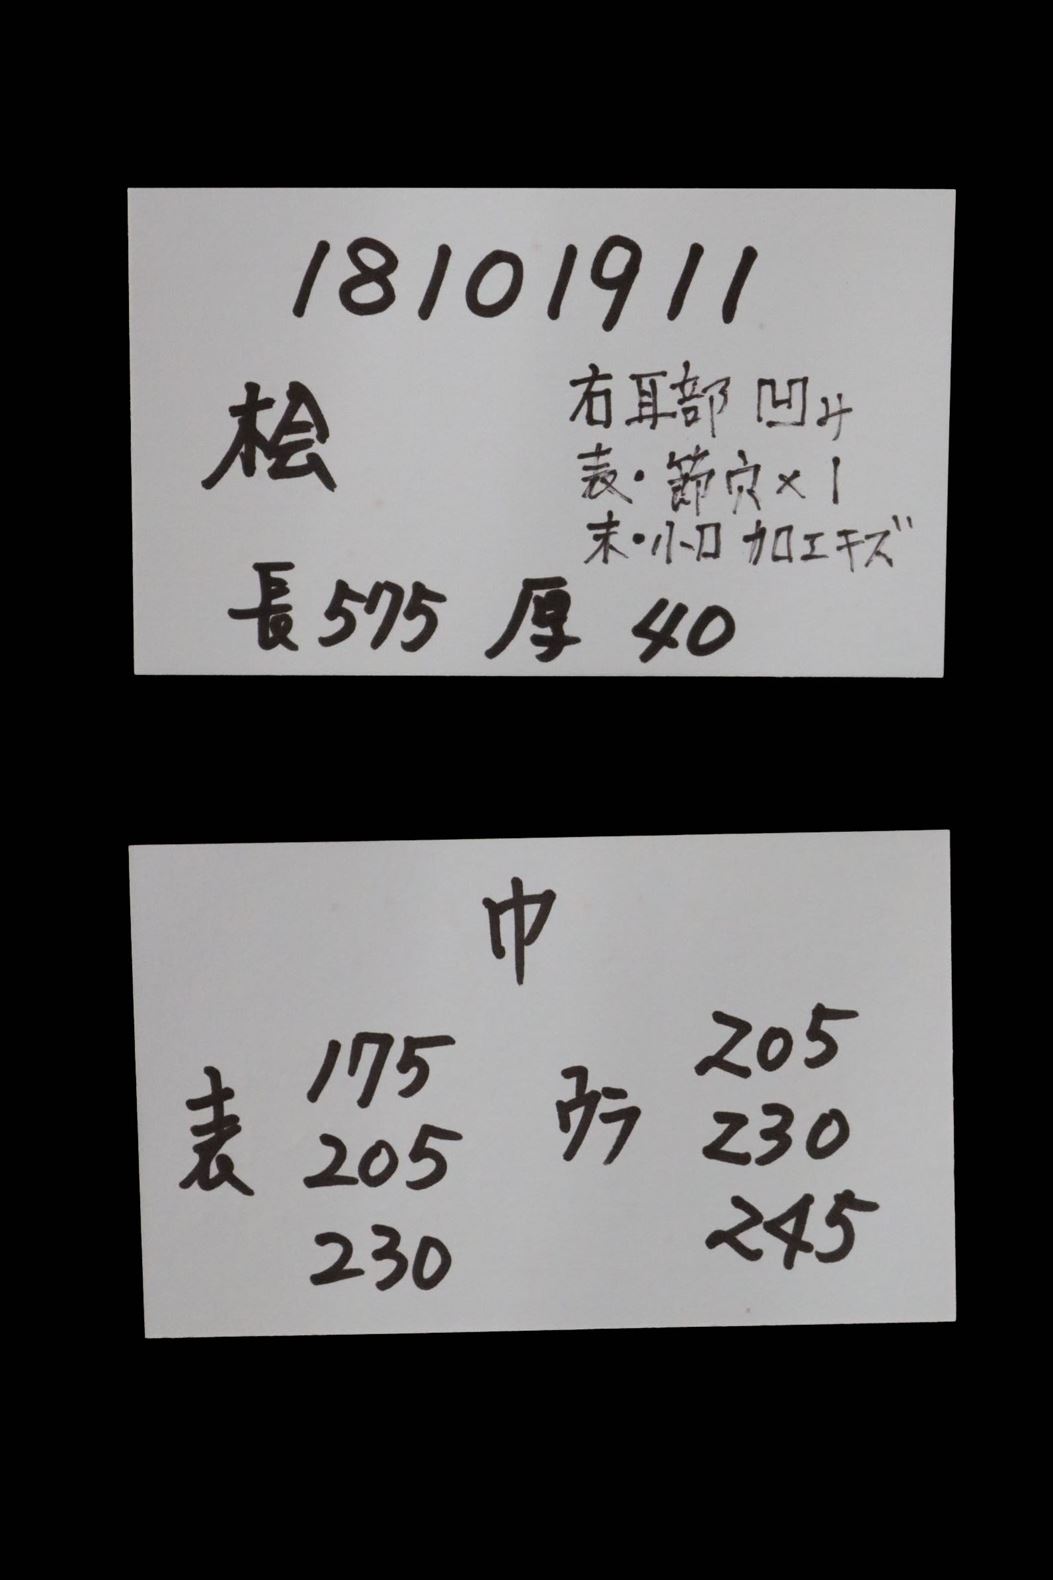 18101911
桧
右耳部 凹み
表・節穴×1
末・小口 加工キズ
長575 厚 40
巾
表
175
205
230
ウラ
205
230
245